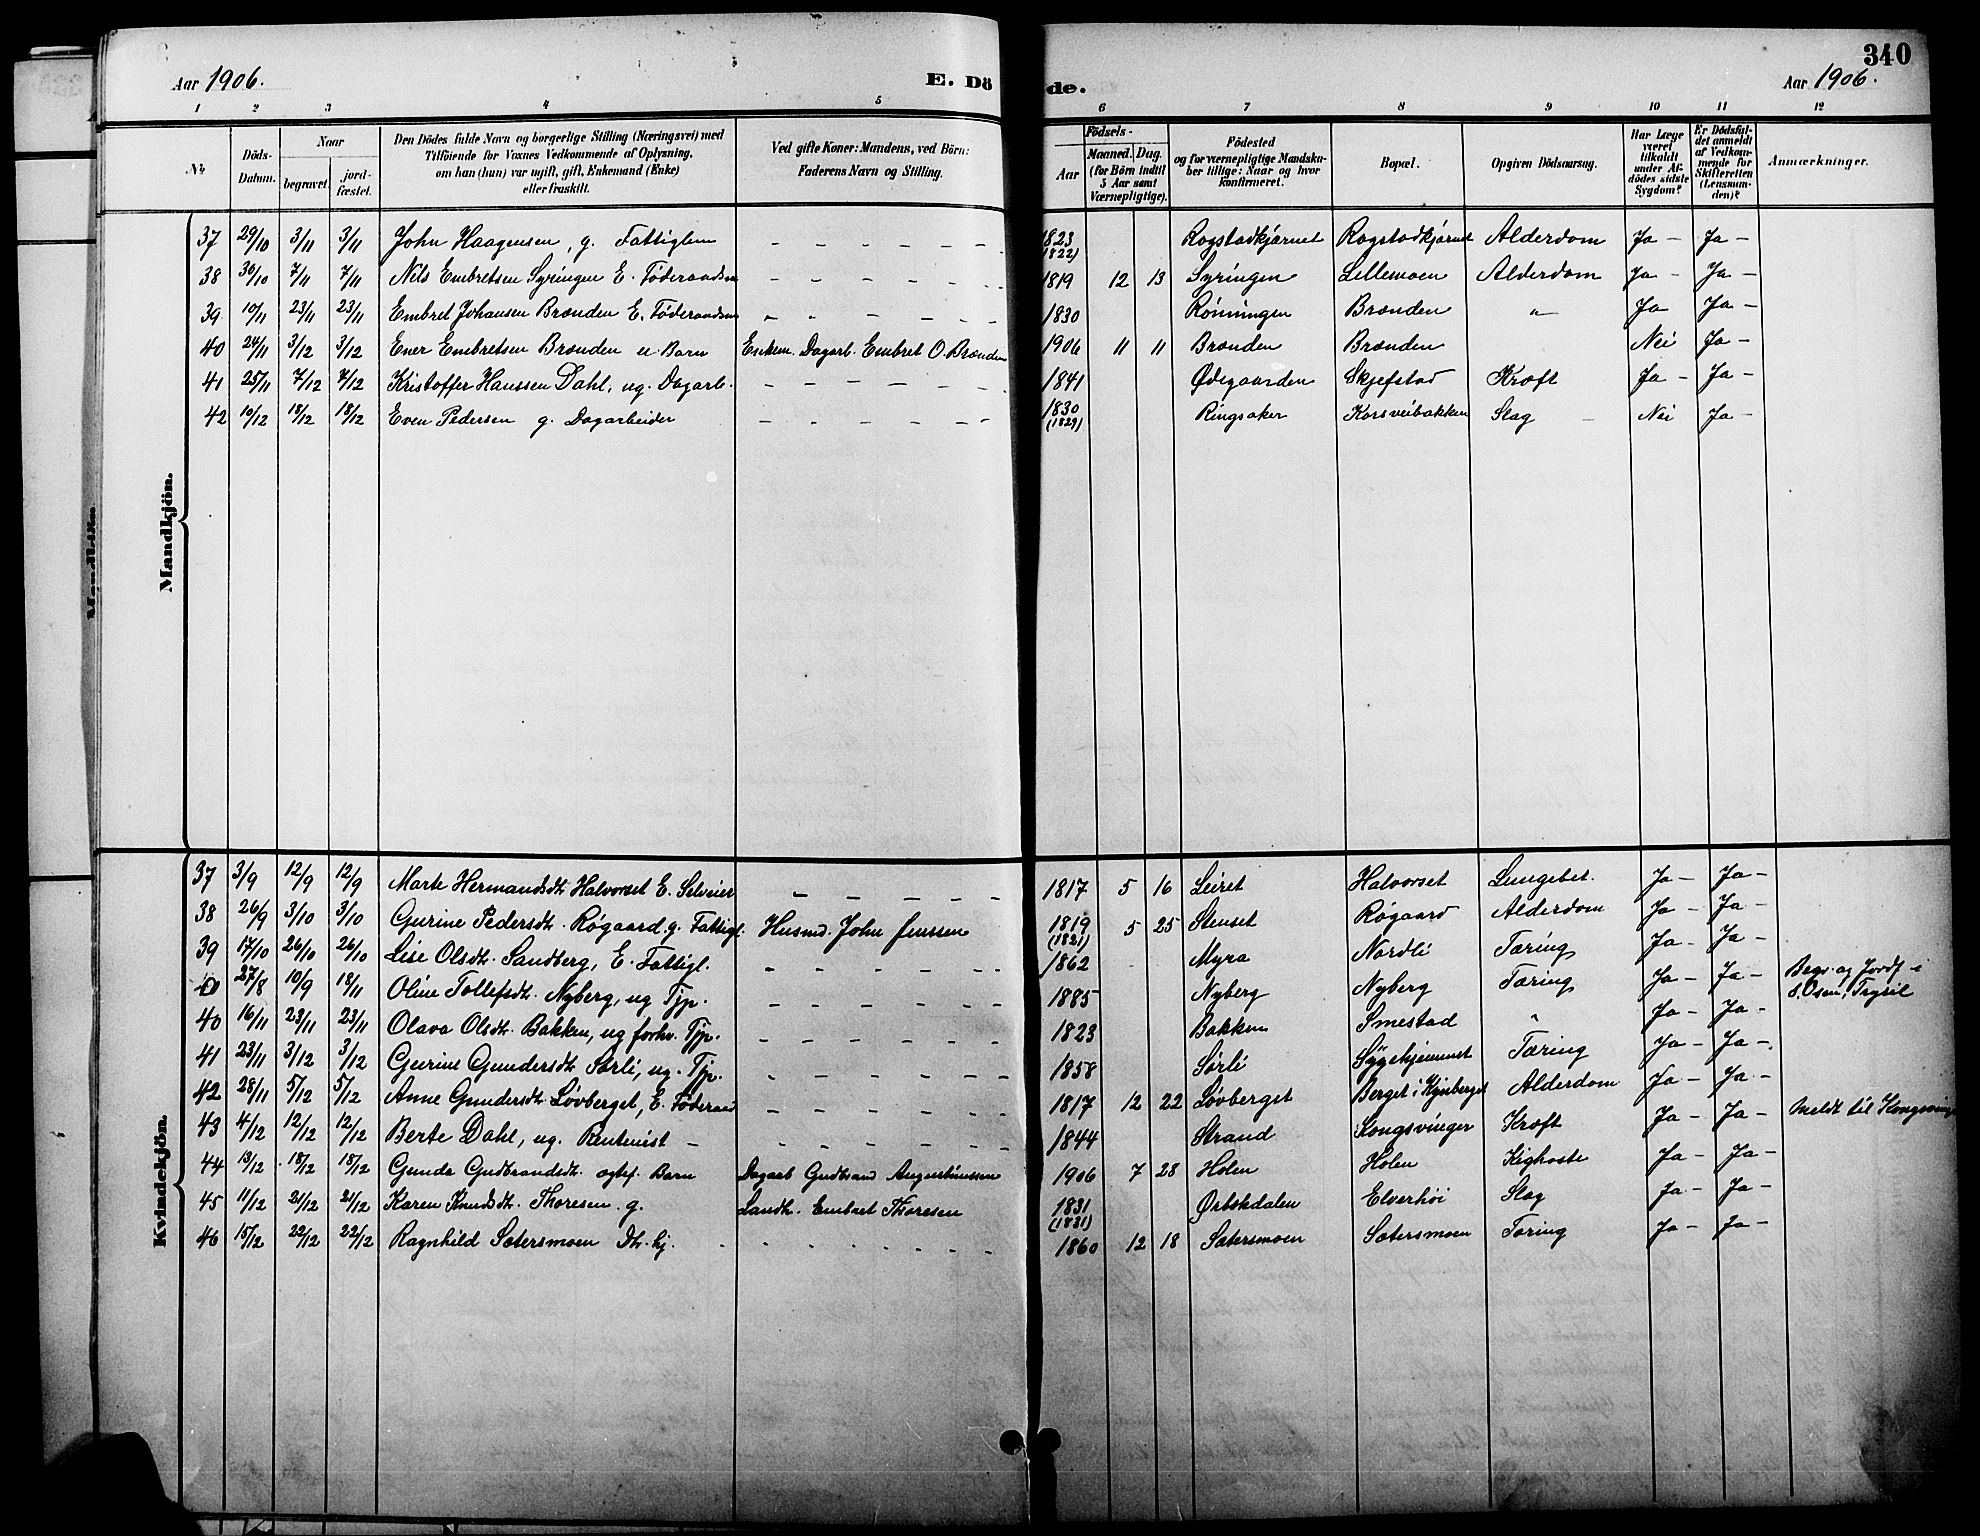 340
Aar 1906.
E. Dö
de.
Aar 1906.
1 2 3 4 5 6 7 8 9 10 11 12
No.
Döds-Datum.
Naar
begravet.
jord-fæstet.
Den Dödes fulde Navn og borgerlige Stilling (Næringsvei) med
Tilföiende for Voxnes Vedkommende af Oplysning,
om han (hun) var ugift, gift, Enkemand (Enke)
eller fraskilt.
Ved gifte Koner: Mandens, ved Börn:
Faderens Navn og Stilling.
Födsels-
Aar
Maaned. Dag.
(for Börn indtil
5 Aar samt
Værnepligtige).
Födested
og for værnepligtige Mandska-
ber tillige: Naar og hvor
konfirmeret.
Bopæl.
Opgiven Dödsaarsag.
Har Læge
været
tilkaldt
under Af-
dödes sidste
Sygdom?
Er Dödsfal-
det anmeldt
af Vedkom-
mende for
Skifteretten
(Lensman-
den)?
Anmærkninger.
Mandkjön.
37 29/10 3/11 3/11 John Haagensen, g. Fattiglem - - - - - - 1823 (1822) Rogstadkjærnet Rogstadkjærnet Alderdom Ja - Ja -
38 30/10 7/11 7/11 Nils Embretsen Syringen E. Föderaadsm - - - - - - 1819 12 13 Syringen Lillemoen Alderdom Ja - Ja -
39 10/11 23/11 23/11 Embret Johansen Brænden E. Föderaadsm - - - - - - 1830 Rönningen Brænden " Ja Ja -
40 24/11 3/12 3/12 Ener Embretsen Brænden u. Barn Enkem. Dagarb. Embret O. Brænden 1906 11 11 Brænden Brænden Nei Ja -
41 25/11 7/12 7/12 Kristoffer Hanssen Dahl, ug. Dagarb. - - - - - - 1841 Ødegaarden Skjefstad Kræft Ja - Ja -
42 10/12 18/12 18/12 Even Pedersen g. Dagarbeider - - - - - - 1830 (1829) Ringsaker Korsveibakken Slag - Nei Ja -
Kvindekjön.
37 3/9 12/9 12/9 Marte Hermandsdtr. Halvorset E. Selveier - - - - - 1817 5 16 Leiret Halvorset Lungebet. Ja - Ja -
38 26/9 3/10 3/10 Gurine Pedersdt. Røgaard g. Fattigl. Husmd. John Jenssen 1819 (1821) 5 25 Stenset Røgaard Alderdom Ja - Ja -
39 17/10 26/10 26/10 Lise Olsdt. Sandberg, E. Fattigl. - - - - - - 1862 Myra Nordli Tæring Ja - Ja -
27/8 10/9 18/11 Oline Tollefsdt. Nyberg, ug Tjp. - - - - - - 1885 Nyberg Nyberg Tæring Ja - Ja - Begr. og Jordf. i
S. Osen, Trysil
40 16/11 23/11 23/11 Olava Olsdt. Bakken, ug forhv. Tjp. - - - - - - 1823 Bakken Smestad " Ja - Ja -
41 23/11 3/12 3/12 Gurine Gundersdt Sørli, ug. Tjp. - - - - - - 1858 Sørli Sygehjemmet Tæring Ja - Ja -
42 28/11 5/12 5/12 Anne Gundersdt. Løvberget, E. Föderaad - - - - - - 1817 12 22 Løvberget Berget i Kynberget Alderdom Ja - Ja -
43 4/12 12/12 12/12 Berte Dahl, ug. Rentenist - - - - - - - 1844 Strand Kongsvinger Kræft Ja - Ja - Meldt til Kongsvinger
44 13/12 18/12 18/12 Gunda Gudbrandsdt. ægtef. Barn Dagarb Gudbrand Augustinussen 1906 7 28 Holen Holen Kighoste Ja - Ja -
45 11/12 21/12 21/12 Karen Knudsdt. Thoresen g. Landh. Embret Thoresen 1831 (1831) Ørbækdalen Elverhöi Slag Ja - Ja -
46 15/12 22/12 22/12 Ragnhild Sætersmoen Dtr. hj. - - - - - - 1860 12 18 Sætersmoen Sætersmoen Tæring Ja - Ja -